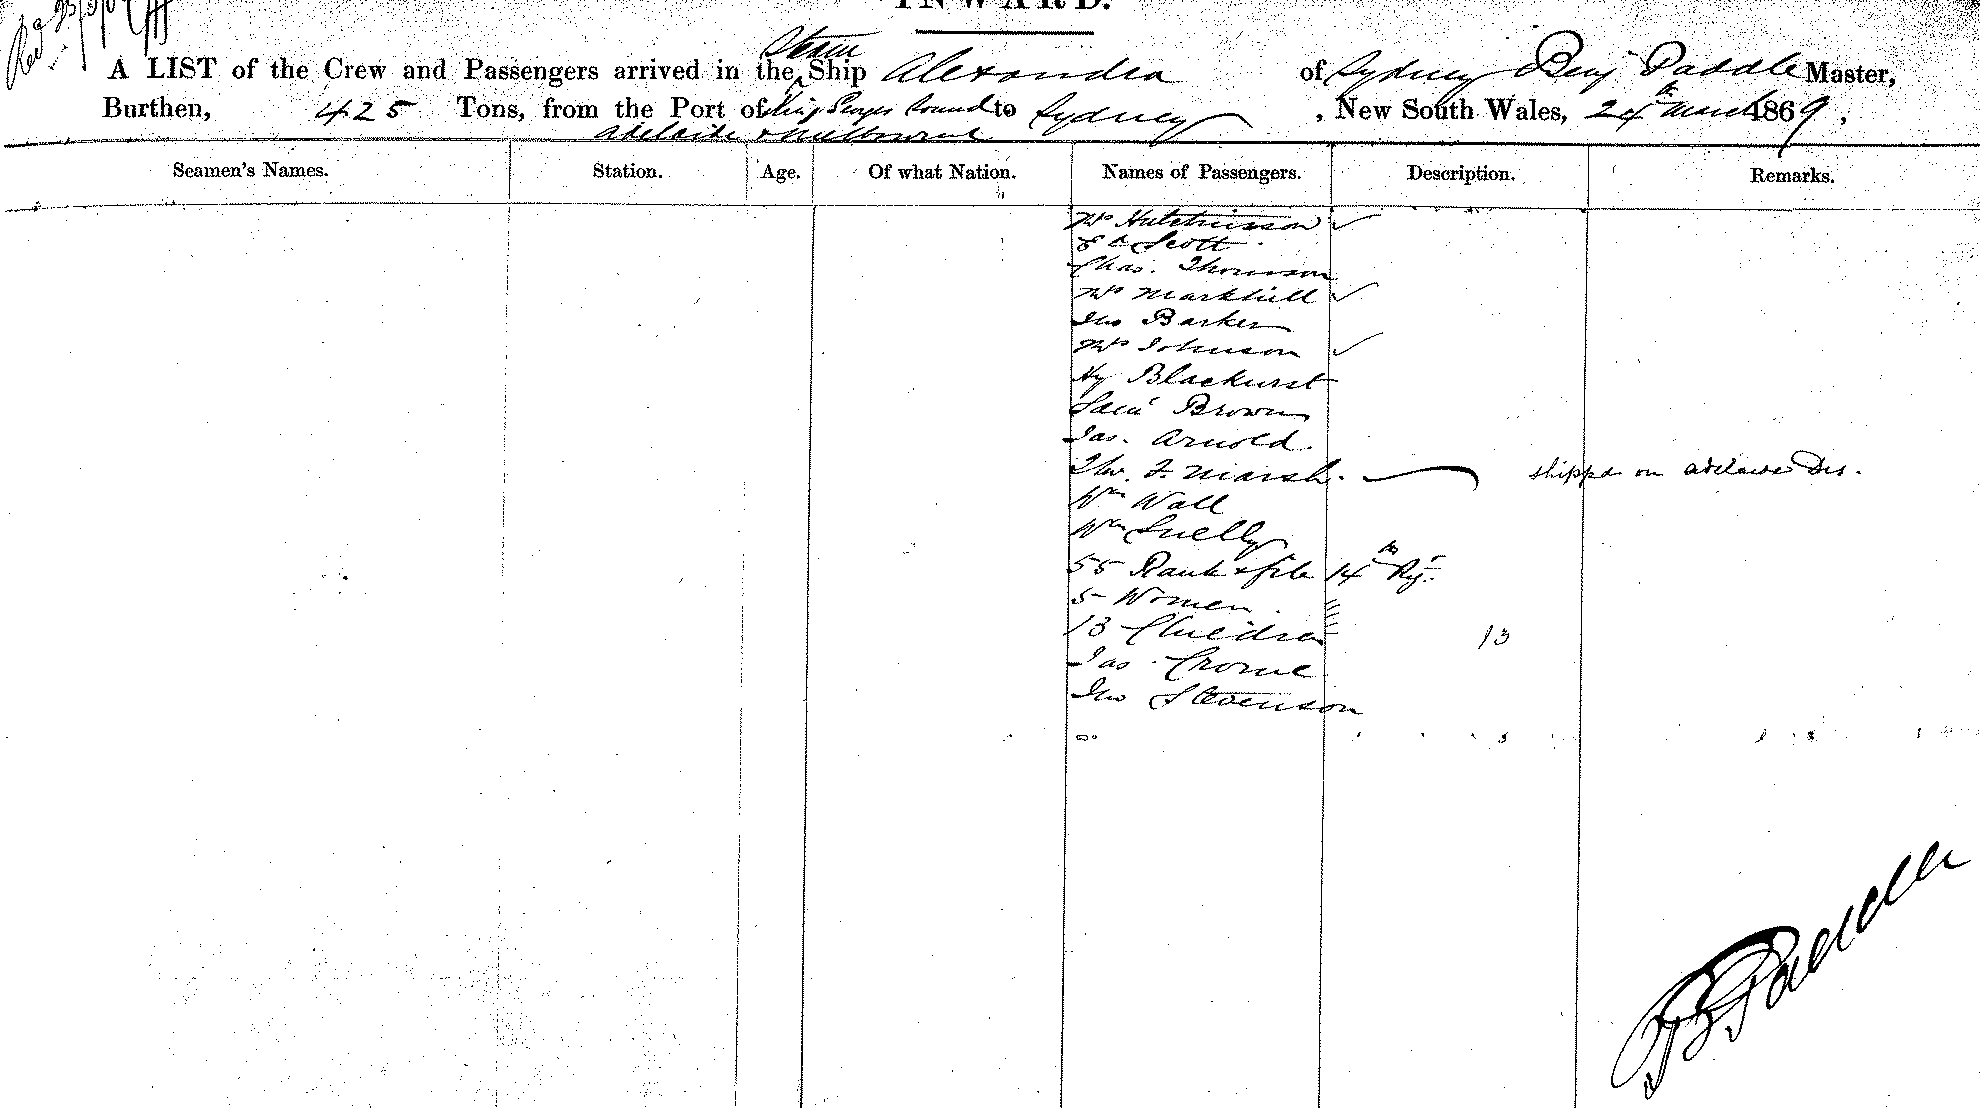 INWARD.
Steam
A LIST of the Crew and Passengers arrived in the Ship Alexandra of Sydney Benj Paddle Master,
Burthen, 425 Tons, from the Port of bound to Sydney, New South Wales, 24th March 1869,
Adelaide & Melbourne
Seamen's Names. Station. Age. Of what Nation. Names of Passengers. Description. Remarks.
Mrs Hutchinson ✓
Ed Scott
Chas. Thomson
Mrs Markhill ✓
Jno Barker
Mrs Johnson ✓
Hy Blackurst
Saml Brown
Jas. Arnold
Tho. F. Marsh. shippd on Adelaide Dis.
Wm Wall
Wm Snelly
55 Rank & file 14th Rgt.
5 Women
13 Children 13
Jas. Crome
Jno Stevenson
B Paddle